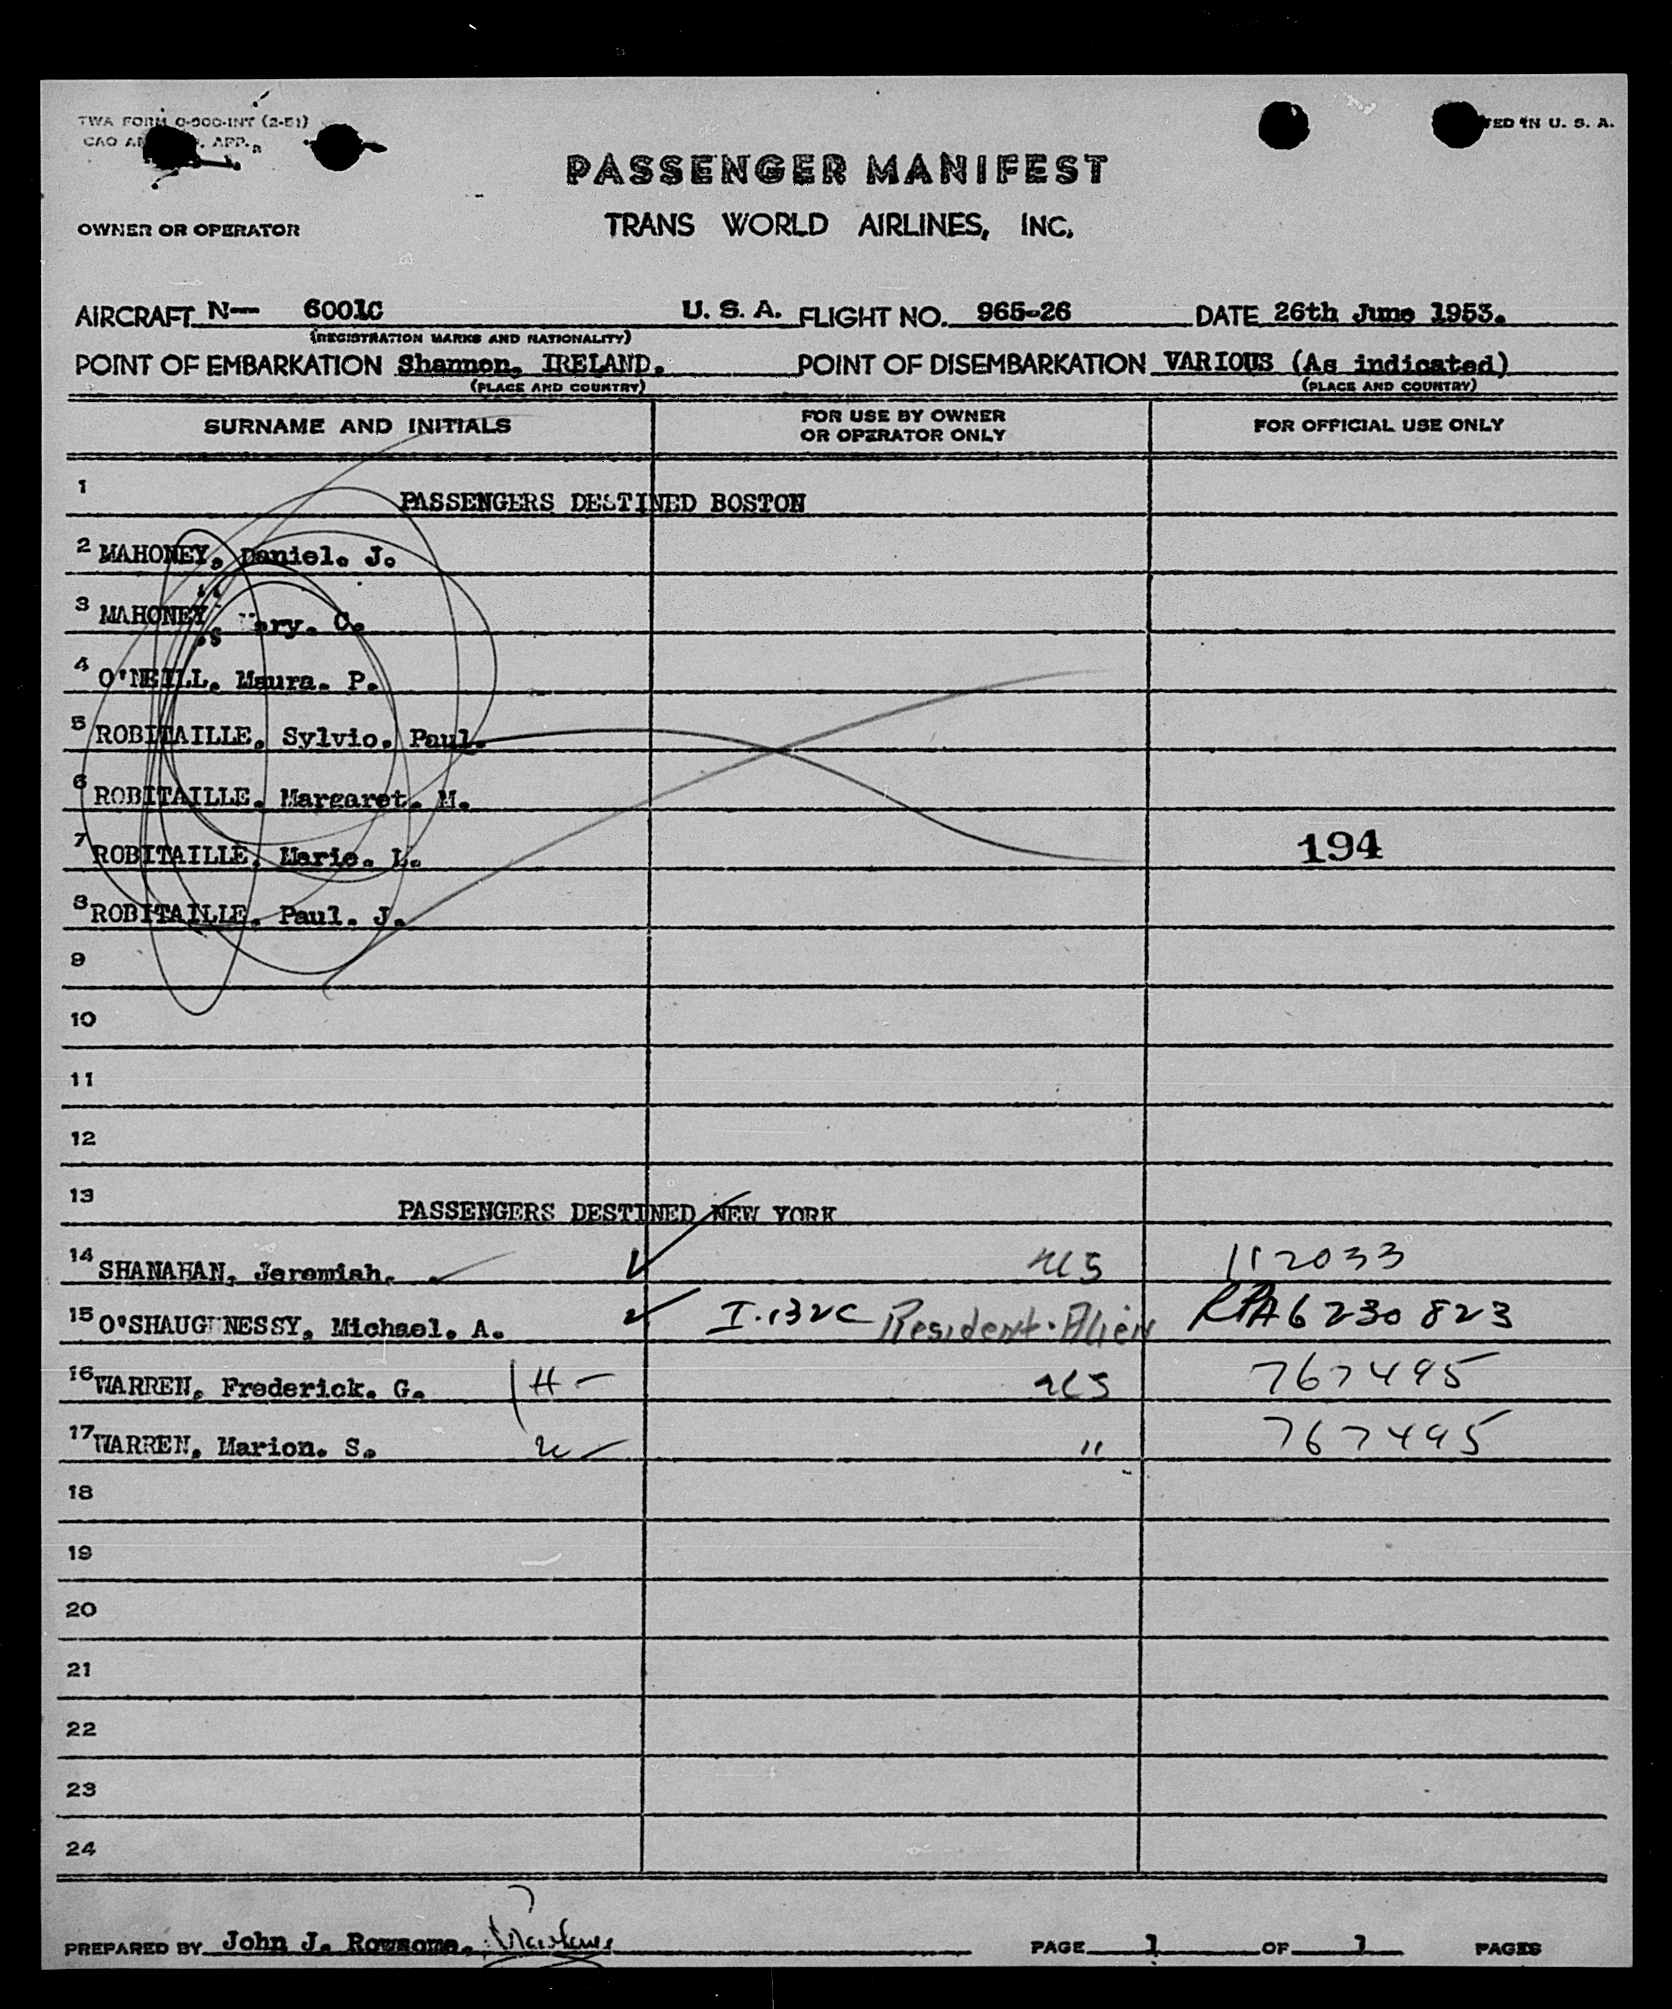 TWA FORM O-900-INT (2-51)
CAO APP.
ED IN U. S. A.
PASSENGER MANIFEST
OWNER OR OPERATOR
TRANS WORLD AIRLINES, INC.
AIRCRAFT N— 6001C U. S. A. FLIGHT NO. 965-26 DATE 26th June 1953.
(REGISTRATION MARKS AND NATIONALITY)
POINT OF EMBARKATION Shannon, IRELAND. POINT OF DISEMBARKATION VARIOUS (As indicated)
(PLACE AND COUNTRY) (PLACE AND COUNTRY)
SURNAME AND INITIALS FOR USE BY OWNER OR OPERATOR ONLY FOR OFFICIAL USE ONLY
1 PASSENGERS DESTINED BOSTON
2 MAHONEY, Daniel. J.
3 MAHONEY, Mary. C.
4 O'NEILL. Maura. P.
5 ROBITAILLE, Sylvio. Paul.
6 ROBITAILLE. Margaret. M.
7 ROBITAILLE, Marie. L. 194
8 ROBITAILLE. Paul. J.
9
10
11
12
13 PASSENGERS DESTINED NEW YORK
14 SHANAHAN, Jeremiah. UCS 112033
15 O'SHAUGHNESSY, Michael. A. I-132C Resident-Alien RPA6230823
16 WARREN, Frederick. G. H — UCS 767495
17 WARREN, Marion. S. W — " 767495
18
19
20
21
22
23
24
PREPARED BY John J. Rowsome. PAGE 1 OF 1 PAGES